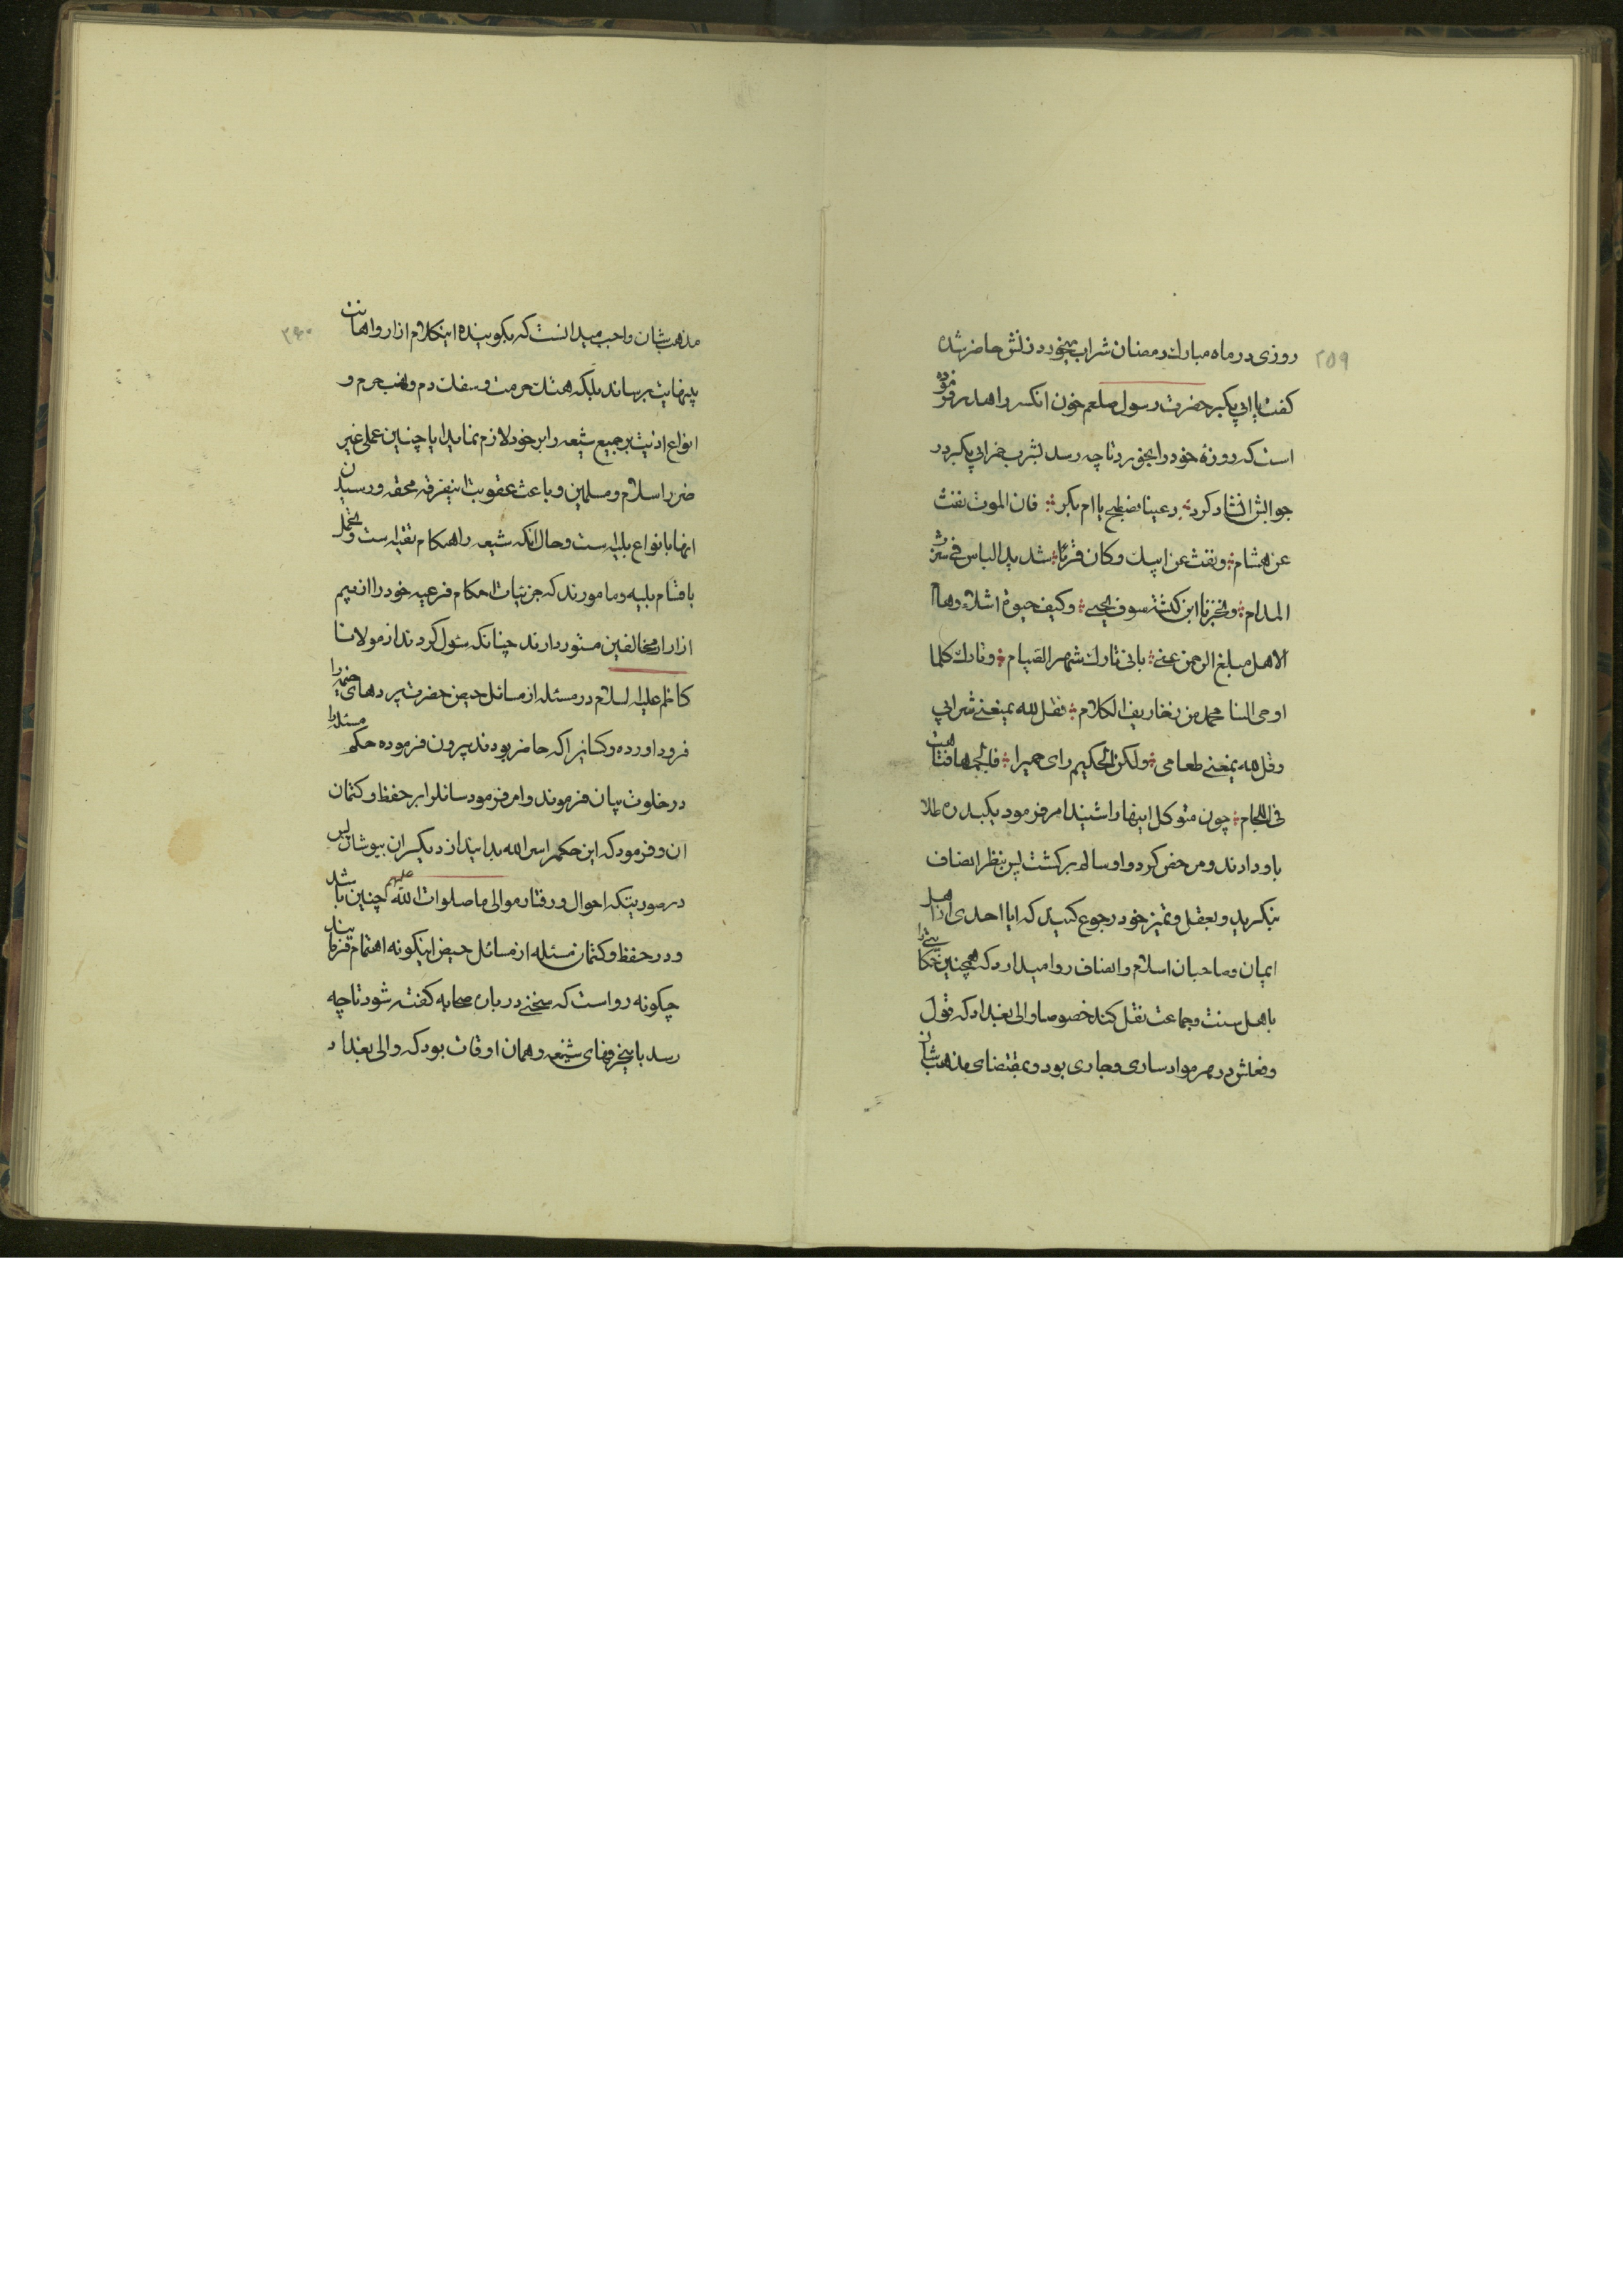 ۲۵۹
روزی در ماه مبارك رمضان شراب میخورد زنش حاضر شده
کفت یا ابی بکر حضرت رسول صلعم خون انکس را هدر فرموده
است که روزهٔ خود را بخورد تا چه رسد بشرب خمر ابی بکر در
جوابش انشاد کرد دعینا نصطبح یا ام بکر فان الموت نفث
عن هشام ونفث عن ابیك وکان قرما شدید الباس فی شرب
المدام ویخبرنا ابن کبشة سوف نحیی وکیف حیوة اشلاء وهام
الا هل مبلغ الرحمن عنی بانی تارك شهر الصیام وتارك کلما
اوحی الینا محمد من زخاریف الکلام فقل لله یمنعنی شرابی
وقل لله یمنعنی طعامی ولکن الحکیم رای حمیرا فالجمها فتاهت
فی اللجام چون متوکل اینها را شنید امر فرمود یکبدره طلا
باو دادند و مرخص کرد و او سالم برکشت پس بنظر انصاف
بنکرید و بعقل و تمیز خود رجوع کنید که ایا احدی از اهل
ایمان و صاحبان اسلام و انصاف روا میدارد که همچنین حکایتی را
باهل سنت و جماعت نقل کند خصوصا والی بغداد که قول
و فعلش در هر مواد ساری و جاری بود و بمقتضای مذهب شان
۲۶۰
مذهب شان واجب میدانست که بکوینده اینکلام ازار و اهانت
بینهایت برساند بلکه هتك حرمت و سفك دم و نهب حرم و
انواع اذیت بر جمیع شیعه را بر خود لازم نماید ایا چنین عملی غیر
ضرر اسلام و مسلمین و باعث عقوبت اینفرقه محقه و رسیدن
انها بانواع بلیه است و حال انکه شیعه را هنکام تقیه است و تحمل
باقسام بلیه و مامورند که جزئیات احکام فرعیه خود را از بیم
ازار از مخالفین مستور دارند چنانکه سئول کردند از مولانا
کاظم علیه السلام در مسئله از مسائل حیض حضرت پردهای خیمه را
فرود اورده و کسانیرا که حاضر بودند بیرون فرموده حکم مسئله را
در خلوت بیان فرموند و امر فرمود سائلرا بر حفظ و کتمان
ان و فرمود که این حکمرا سر الله بدانید از دیکران بپوشان پس
در صورتیکه احوال و رفتار موالی ما صلوات الله علیهم چنین باشد
و در حفظ و کتمان مسئله از مسائل حیض اینکونه اهتمام فرمایند
چکونه رواست که سخنی در باره صحابه کفته شود تا چه
رسد باینحرفهای شنیعه و همان اوقات بود که والی بغداد